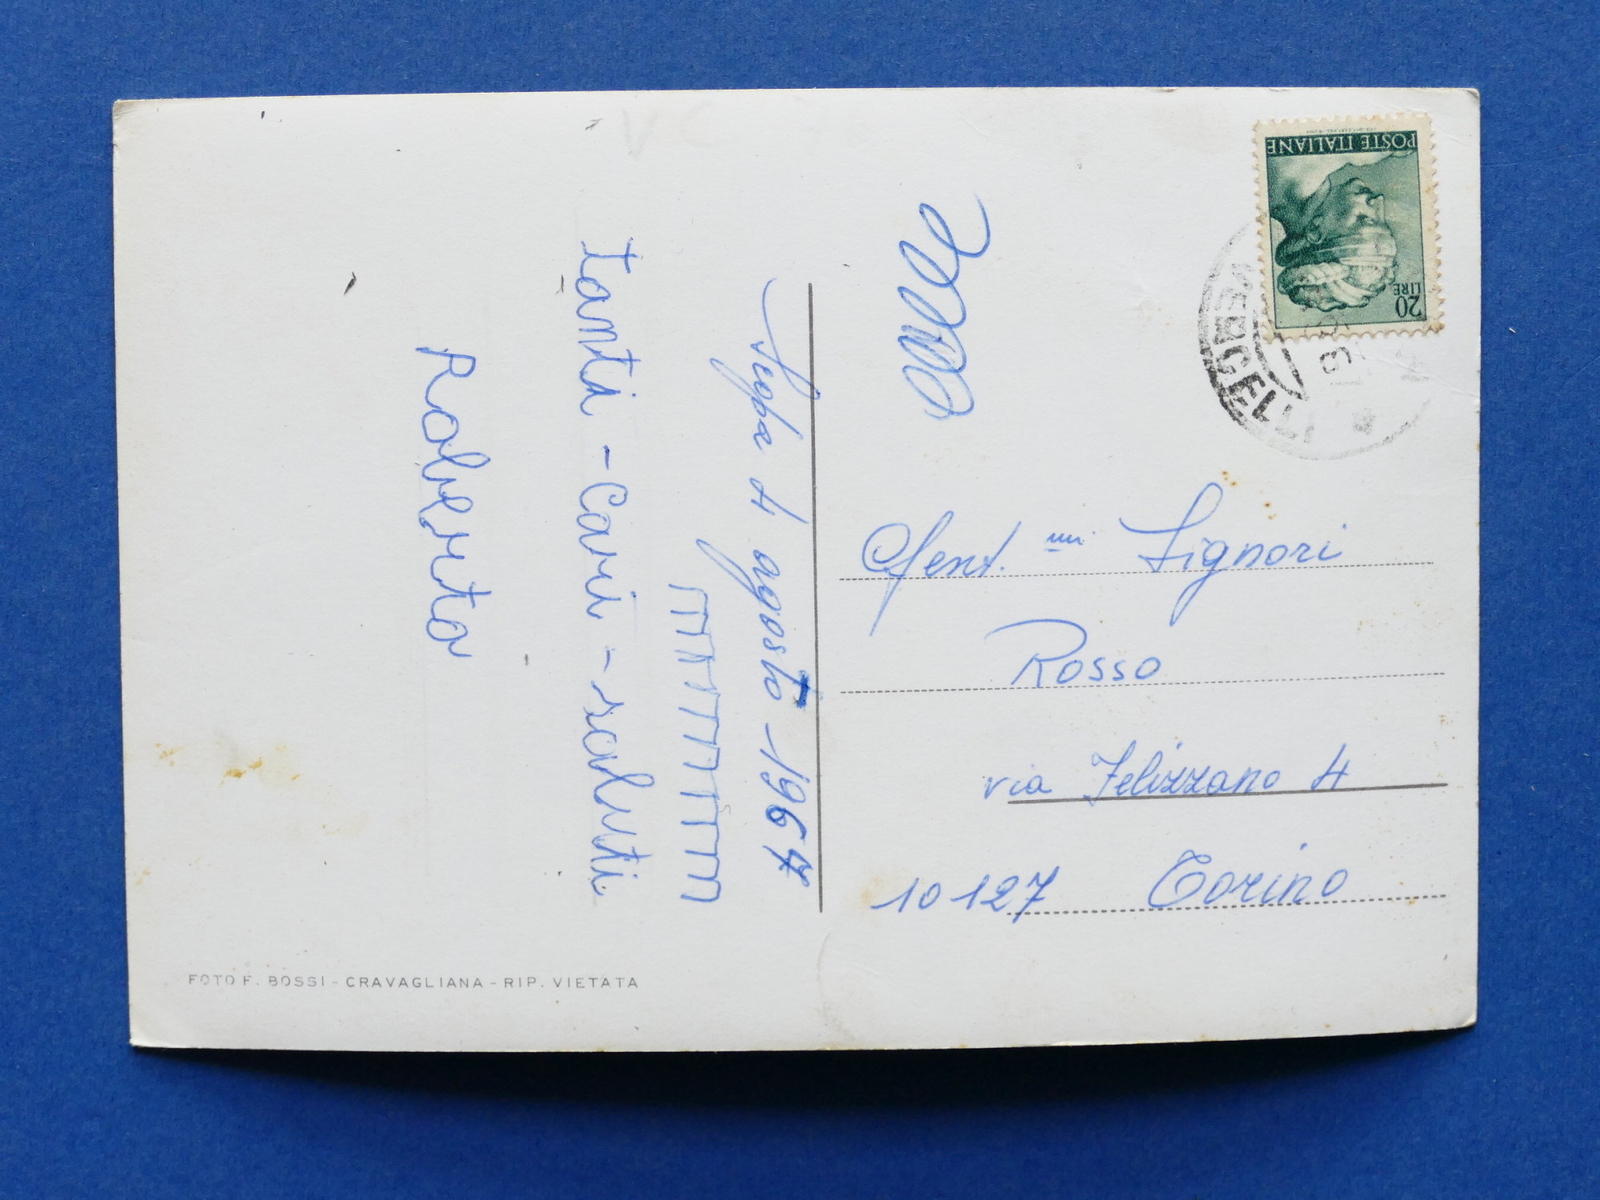 Seppa 4 agosto - 1967
Tanti - Cari - saluti
Roberto
FOTO F. BOSSI - CRAVAGLIANA - RIP. VIETATA
POSTE ITALIANE
20
LIRE
VERCELLI
Gent.mi Signori
Rosso
via Felizzano 4
10127 Torino